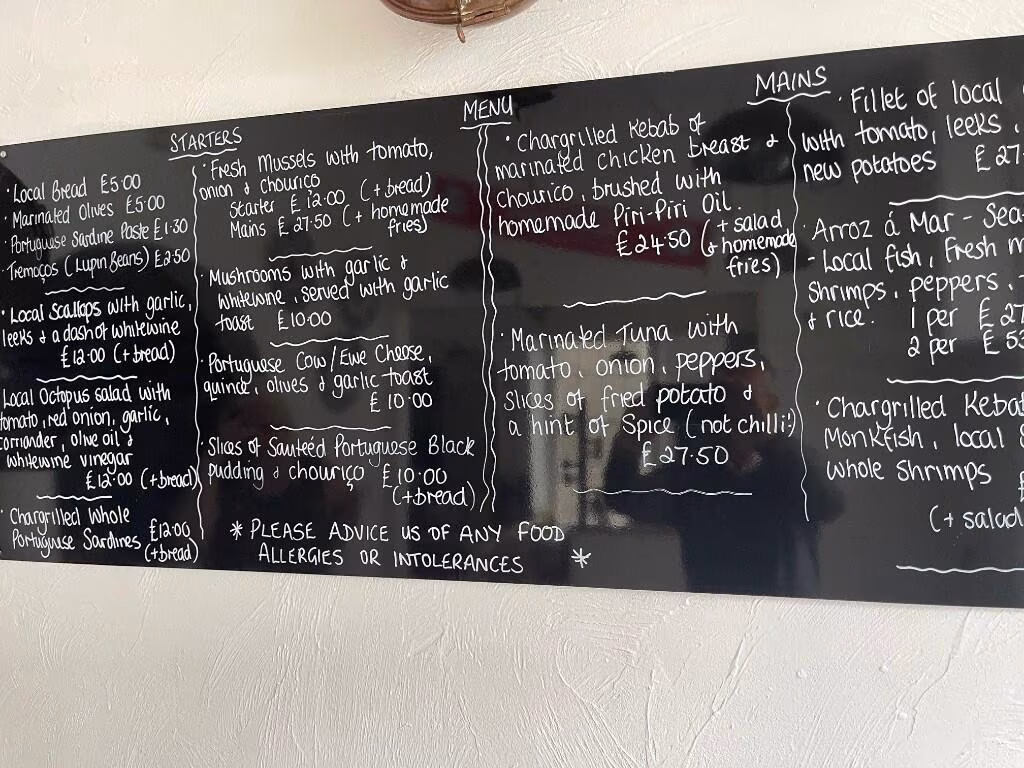 MENU
STARTERS
· Local Bread £5.00
· Marinated Olives £5.00
· Portuguese Sardine Paste £1.30
· Tremoços (Lupin Beans) £2.50
· Local Scallops with garlic,
leeks & a dash of whitewine
£12.00 (+bread)
Local Octopus salad with
tomato, red onion, garlic,
corriander, olive oil &
whitewine vinegar
£12.00 (+bread)
· Chargrilled Whole
Portuguse Sardines £12.00
(+bread)
· Fresh Mussels with tomato,
onion & chourico
Starter £12.00 (+bread)
Mains £27.50 (+ homemade
fries)
· Mushrooms with garlic &
whitewine, served with garlic
toast £10.00
· Portuguese Cow/Ewe Cheese,
quince, olives & garlic toast
£10.00
· Slices of Sauteéd Portuguese Black
pudding & chouriço £10.00
(+bread)
* PLEASE ADVICE US OF ANY FOOD
ALLERGIES OR INTOLERANCES *
MAINS
· Chargrilled Kebab of
marinated chicken breast &
chourico, brushed with
homemade Piri-Piri Oil.
£24.50 (+ salad
& homemade
fries)
· Marinated Tuna with
tomato, onion, peppers,
slices of fried potato &
a hint of Spice (not chilli!)
£27.50
· Fillet of local
with tomato, leeks,
new potatoes £27.
· Arroz á Mar - Sea
- Local fish, Fresh m
Shrimps, peppers,
& rice. 1 per £27
2 per £53
· Chargrilled Kebab
Monkfish, local
whole Shrimps £
(+ salad